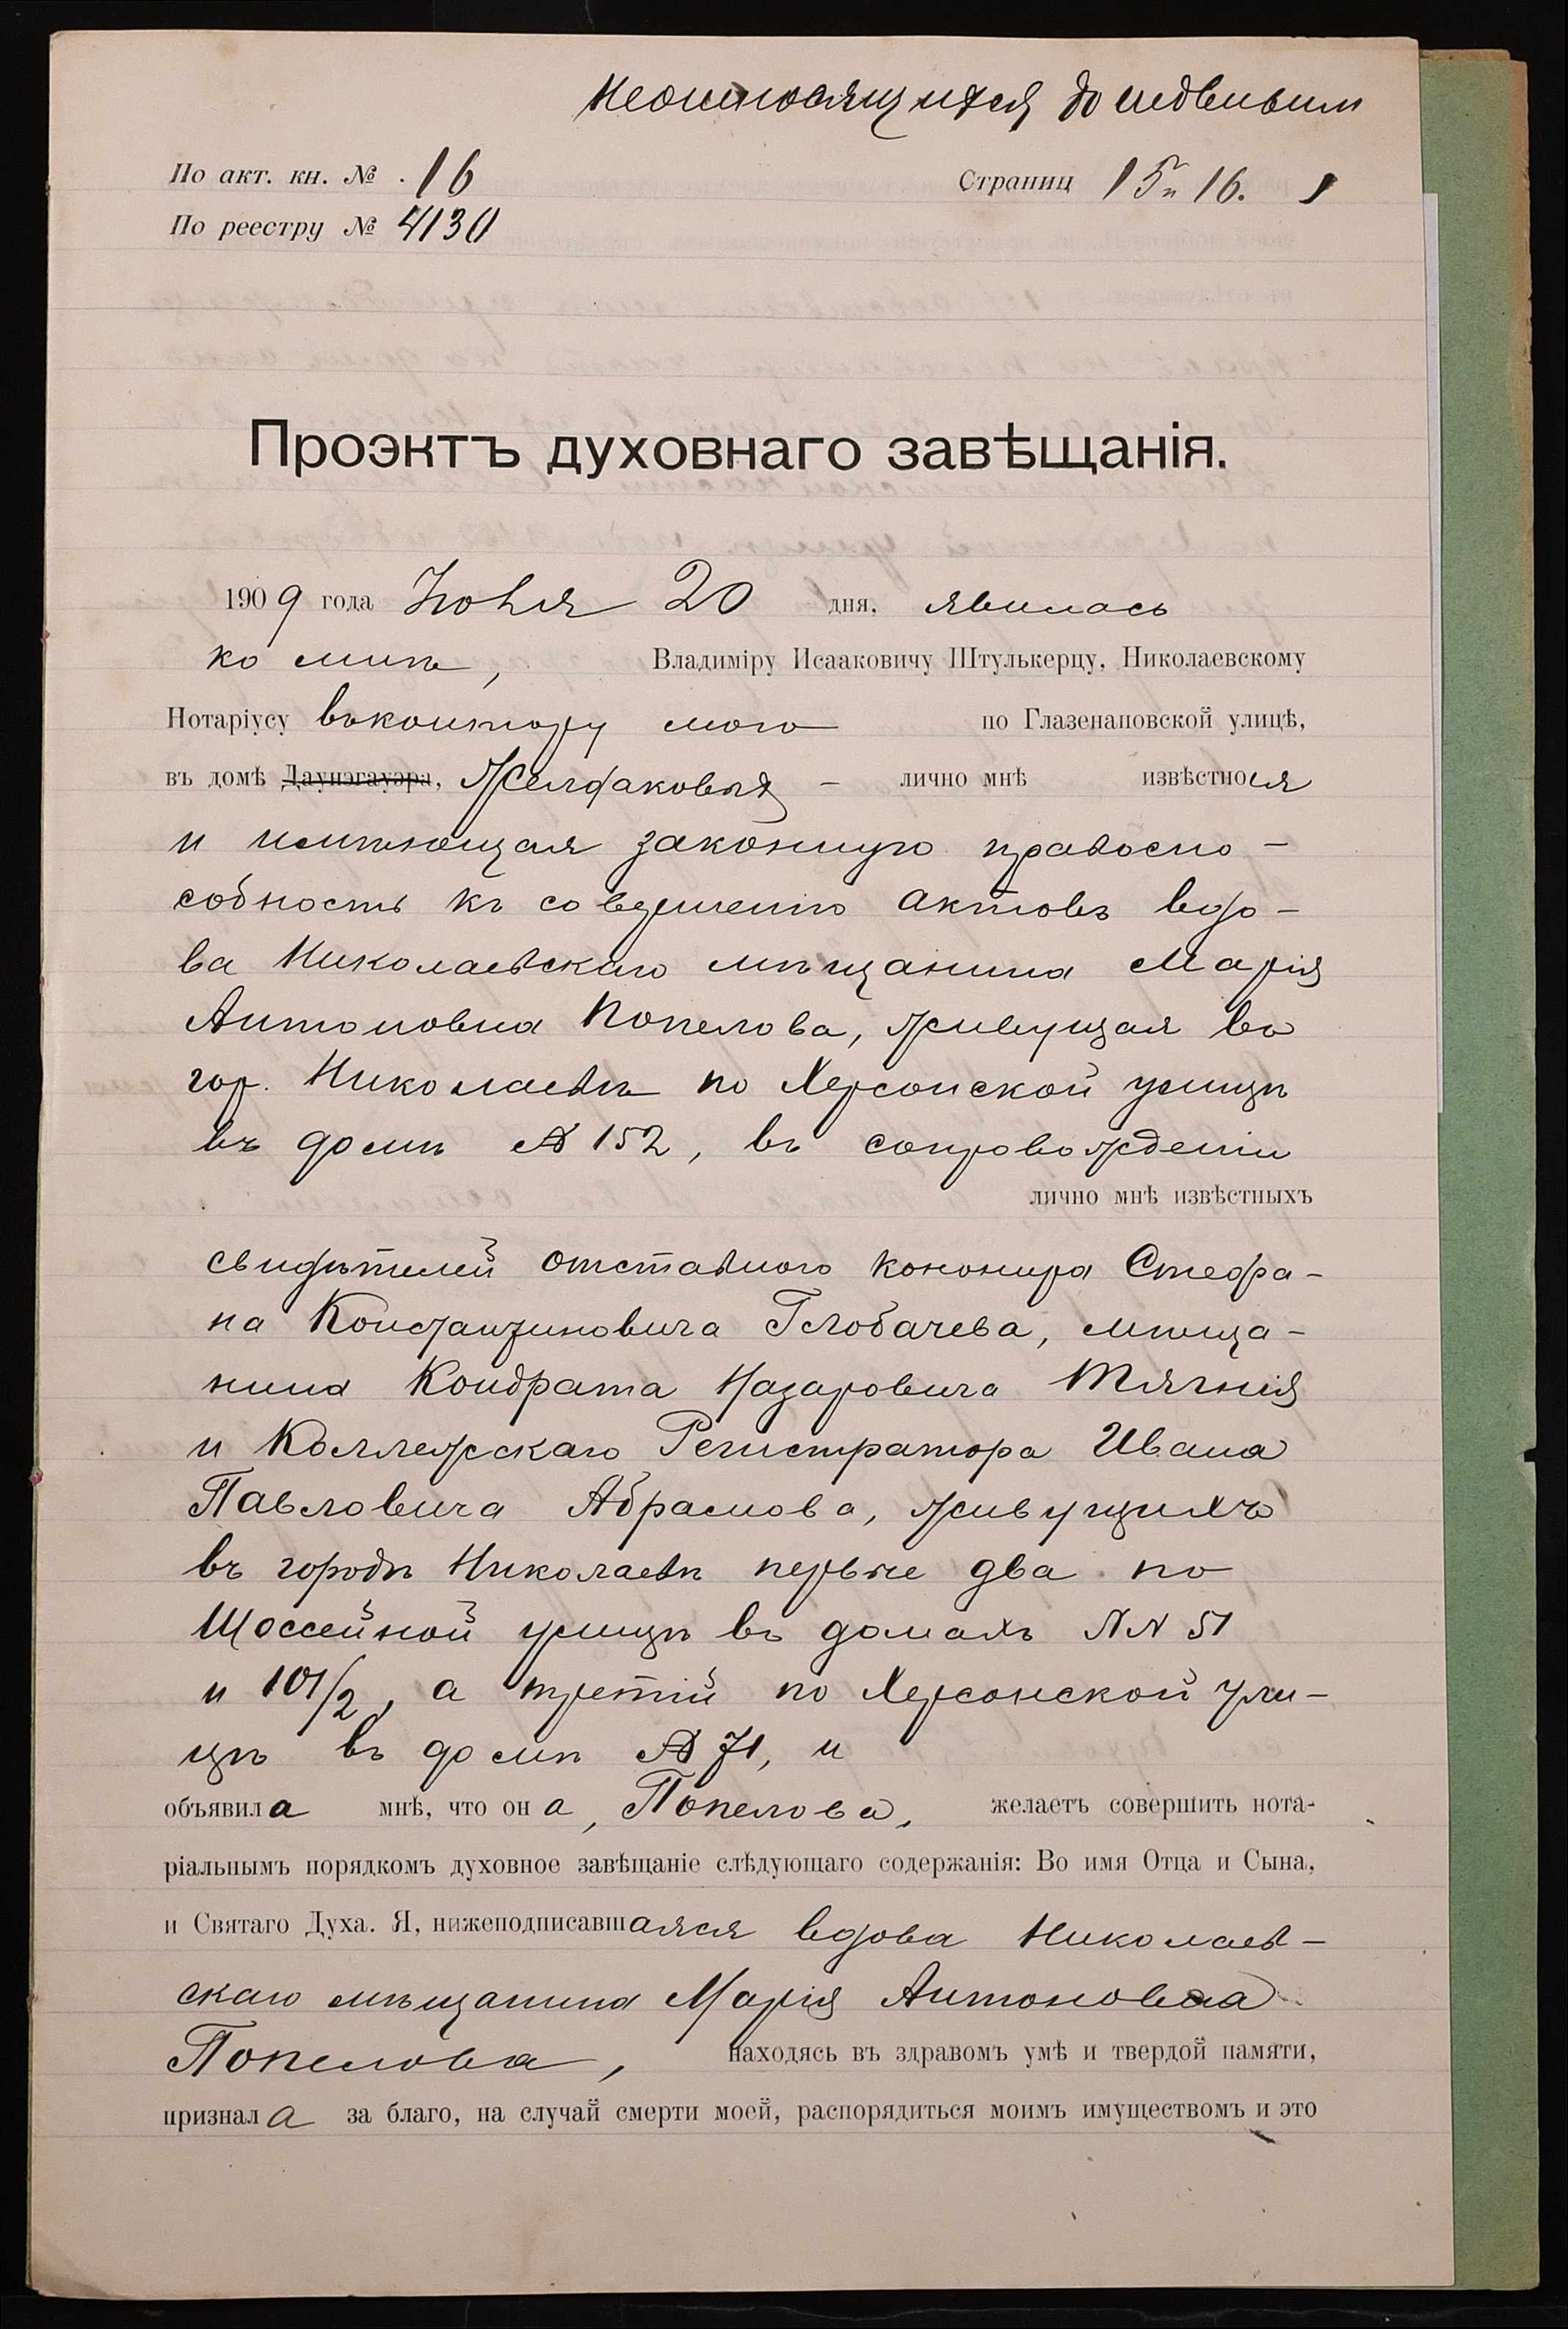 Неотносящихся до недвижим
По акт. кн. № 16
Страниц 15 и 16.
По реестру № 4130
Проэктъ духовнаго завѣщанія.
1909 года Іюня 20 дня, явилась
ко мнѣ, Владиміру Исааковичу Штулькерцу, Николаевскому
Нотаріусу въ контору мою по Глазенаповской улицѣ,
въ домѣ Даунэгауэра, лично мнѣ извѣстная
и имѣющая законную правоспо-
собность къ совершенію актовъ вдо-
ва Николаевскаго мѣщанина Марія
Антоновна Попелова, живущая въ
гор. Николаевѣ по Херсонской улицѣ
въ домѣ № 152, въ сопровожденіи
лично мнѣ извѣстныхъ
свидѣтелей отставного канонира Стефа-
на Константиновича Глобачева, мѣща-
нина Кондрата Назаровича Тягнія
и Коллежскаго Регистратора Ивана
Павловича Абрамова, живущихъ
въ городѣ Николаевѣ первые два по
Шоссейной улицѣ въ домахъ №№ 51
и 101/2, а третій по Херсонской ули-
цѣ въ домѣ № 71, и
объявила мнѣ, что она, Попелова, желаетъ совершить нота-
ріальнымъ порядкомъ духовное завѣщаніе слѣдующаго содержанія: Во имя Отца и Сына,
и Святаго Духа. Я, нижеподписавшаяся вдова Николаев-
скаго мѣщанина Марія Антоновна
Попелова, находясь въ здравомъ умѣ и твердой памяти,
признала за благо, на случай смерти моей, распорядиться моимъ имуществомъ и это